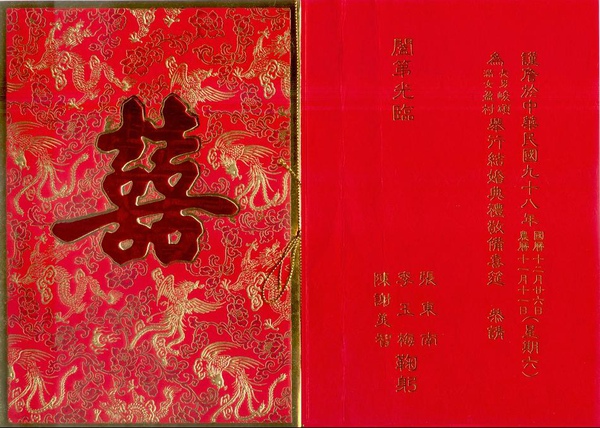 囍
謹詹於中華民國九十八年國曆十二月廿六日農曆十一月十一日(星期六)
為長男峻 次女 舉行結婚典禮敬備喜筵 恭請
闔第光臨
張東南
李玉梅 鞠躬
陳